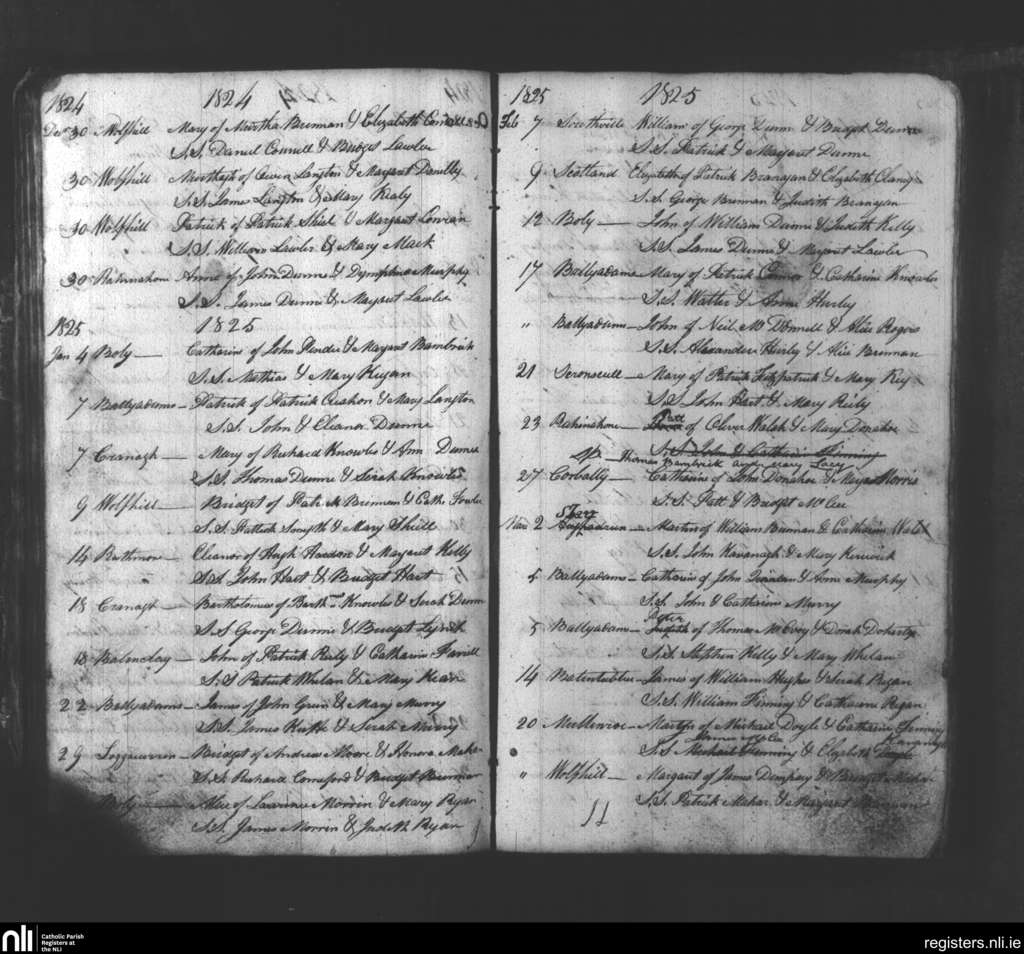 1824 1824
Decr 30 Wolfhill Mary of Murtha Brennan & Elizabeth
S.S. Daniel Connell & Bridget Lawler
30 Wolfhill Murtagh of Owen Langton & Margaret
S.S. James Langton & Mary Kealy
30 Wolfhill Patrick of Patrick Shiel & Margaret
S.S. William Lawler & Mary Mack
30 Ratinahon Anne of John Dunne & Dymphna Murphy
S.S. James Dunne & Margaret Lawler
1825 1825
Jan 4 Boly — Catharine of John & Margaret Bambrick
S.S. Mathias & Mary Hugan
7 Ballyadams — Patrick of Patrick & Mary Langton
S.S. John & Eleanor Dunne
7 Cranagh — Mary of Richard Knowles & Ann Dunne
S.S. Thomas Dunne & Sarah Knowles
9 Wolfhill — Bridget of Patrick Brennan & Cath Lawler
S.S. Patrick Smyth & Mary Shiell
14 Rathmore — Eleanor of Hugh & Margaret Kelly
S.S. John Hart & Bridget Hart
18 Cranagh — Bartholomew of Barthw Knowles & Sarah Dunne
S.S George Dunne & Bridget Lynch
18 — John of Patrick Riely & Catharine Farrell
S.S Patrick Whelan & Mary Kean
22 Ballyadams — James of John Grein & Mary Murry
S.S. James Keeffe & Sarah Murry
29 — Bridget of Andrew Moore & Honora Maher
S.S. Richard Comeford & Bridget Brennan
Boly — Alice of Lawrence Morrin & Mary Ryan
S.S. James Morrin & Judith Ryan
1825 1825
Feb 7 Southville William of George Dunne & Bridget Dunne
S.S. Patrick & Margaret Dunne
9 Scotland Elizabeth of Patrick Branigan & Elizabeth Clancy
S.S. George Brennan & Judith Branigan
12 Boly — John of William Dunne & Judith Kelly
S.S. James Dunne & Margaret Lawler
17 Ballyadams Mary of Patrick Connor & Catharine Knowles
S.S. Walter & Anne Hurley
" Ballyadams — John of Neil McDonnell & Alice Rogers
S.S. Alexander Hurly & Alice Brennan
21 — Mary of Patrick Fitzpatrick & Mary
S.S. John Hart & Mary Reily
23 Ratinahone — Patt of Oliver Walsh & Mary Donahoe
S.S. John & Catharine Finning
Thomas Bambrick Mary Lacy
27 Corbally — Catharine of John Donahoe & Mary Morris
S.S. Patt & Bridget McCue
Mar 2 — Martin of William Brennan & Catharine
S.S. John Kavanagh & Mary Kenwick
5 Ballyadams — Catharine of John Quinlan & Anne Murphy
S.S. John & Catharine Murry
Peter
5 Ballyadams — Judith of Thomas McEvoy & Dorah Doherty
S.S. Stephen Kelly & Mary Whelan
14 — James of William Hughes & Sarah Ryan
S.S. William Finning & Catharine Regan
20 — Martin of Michael Doyle & Catharine Finning
Kavanagh
S.S. Michael Finning & Elizabeth Doyle
" Wolfhill — Margaret of James Dempsey & Bridget Maher
S.S. Patrick Maher & Margaret Brennan
11
nli
Catholic Parish
Registers at
the NLI
registers.nli.ie